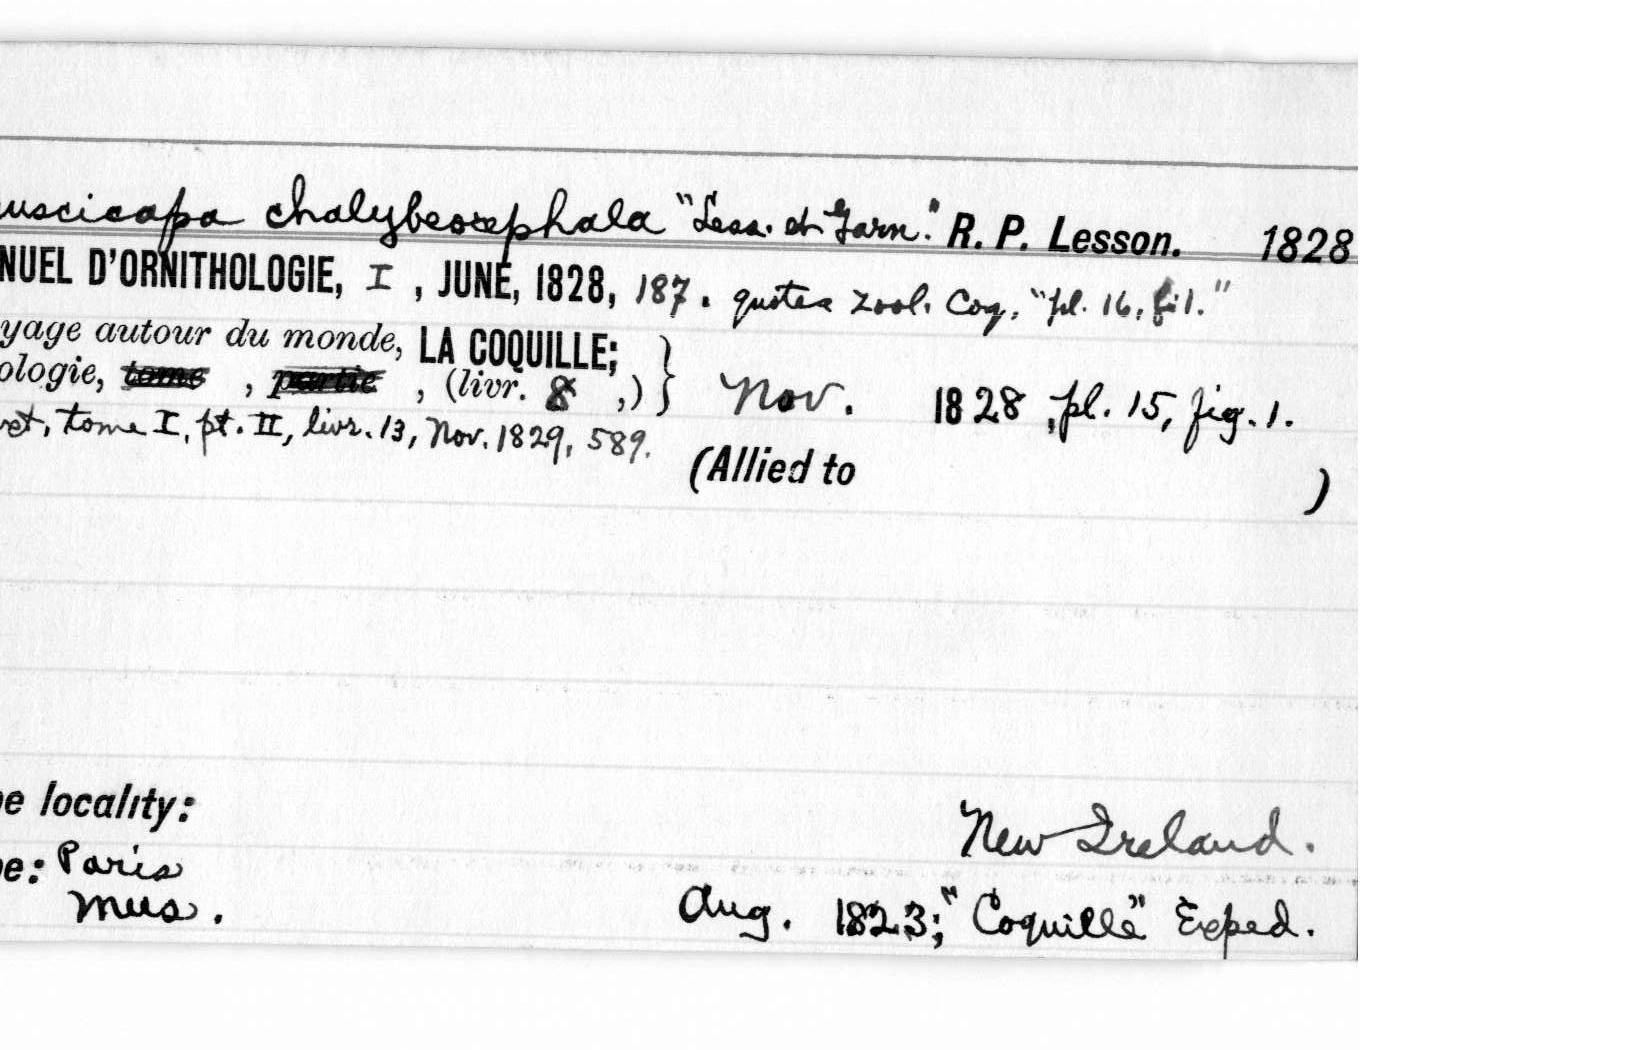 uscicapa chalybeocephala "Less. et Garn." R. P. Lesson. 1828
NUEL D'ORNITHOLOGIE, I , JUNE, 1828, 187. quotes Zool. Coq, "pl. 16, fi 1."
yage autour du monde, LA COQUILLE;
ologie, tome , partie , (livr. 8 ,) } Nov. 1828, pl. 15, fig. 1.
xt, tome I, pt. II, livr. 13, Nov. 1829, 589.
(Allied to )
e locality: New Ireland.
e: Paris
Mus. Aug. 1823; "Coquille" Exped.